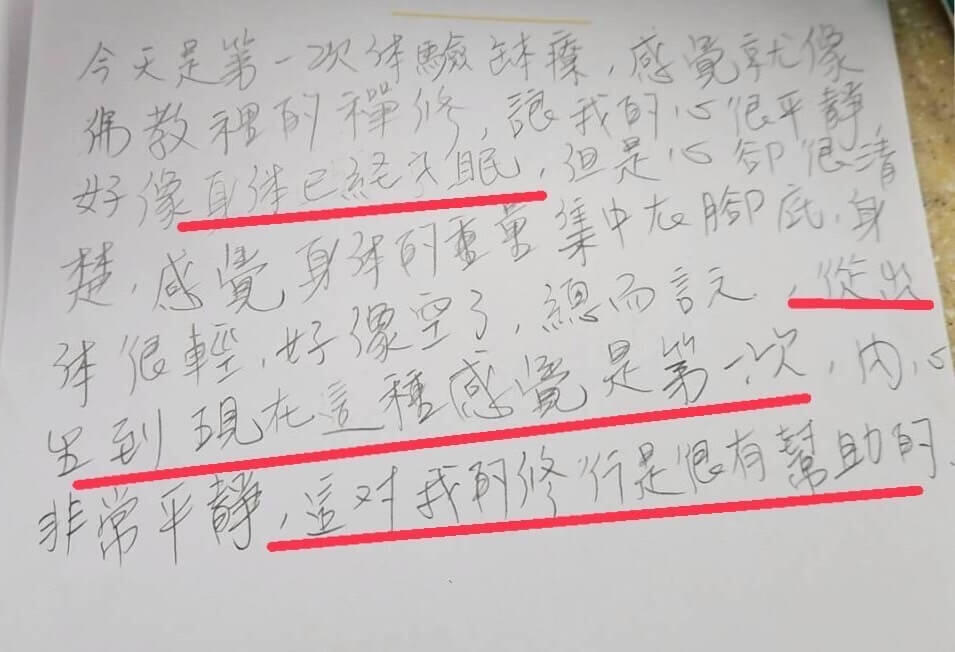 今天是第一次体驗缽療,感覺就像
佛教裡的禪修,讓我的心很平靜,
好像身体已経入眠,但是心卻很清
楚,感覺身体的重量集中在腳底,身
体很輕,好像空了,總而言之,從出
生到現在這種感覺是第一次,内心
非常平靜,這对我的修行是很有幫助的.